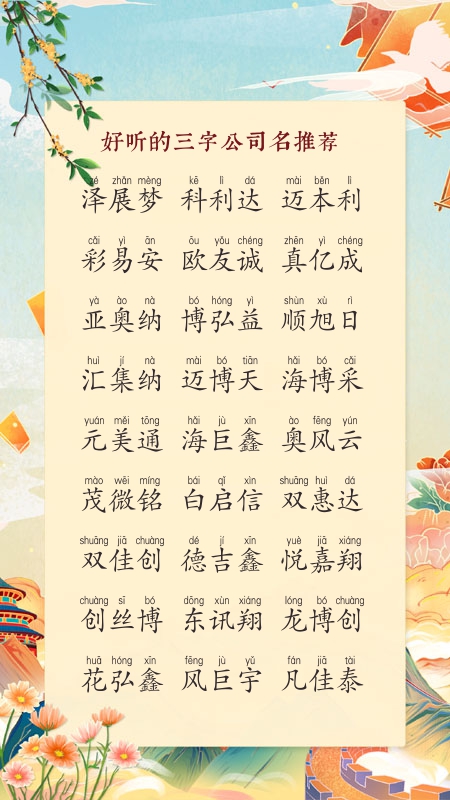 好听的三字公司名推荐
zé zhǎn mèng kē lì dá mài běn lì
泽展梦 科利达 迈本利
cǎi yì ān ōu yǒu chéng zhēn yì chéng
彩易安 欧友诚 真亿成
yà ào nà bó hóng yì shùn xù rì
亚奥纳 博弘益 顺旭日
huì jí nà mài bó tiān hǎi bó cǎi
汇集纳 迈博天 海博采
yuán měi tōng hǎi jù xīn ào fēng yún
元美通 海巨鑫 奥风云
mào wēi míng bái qǐ xìn shuāng huì dá
茂微铭 白启信 双惠达
shuāng jiā chuàng dé jí xīn yuè jiā xiáng
双佳创 德吉鑫 悦嘉翔
chuàng sī bó dōng xùn xiáng lóng bó chuàng
创丝博 东讯翔 龙博创
huā hóng xīn fēng jù yǔ fán jiā tài
花弘鑫 风巨宇 凡佳泰